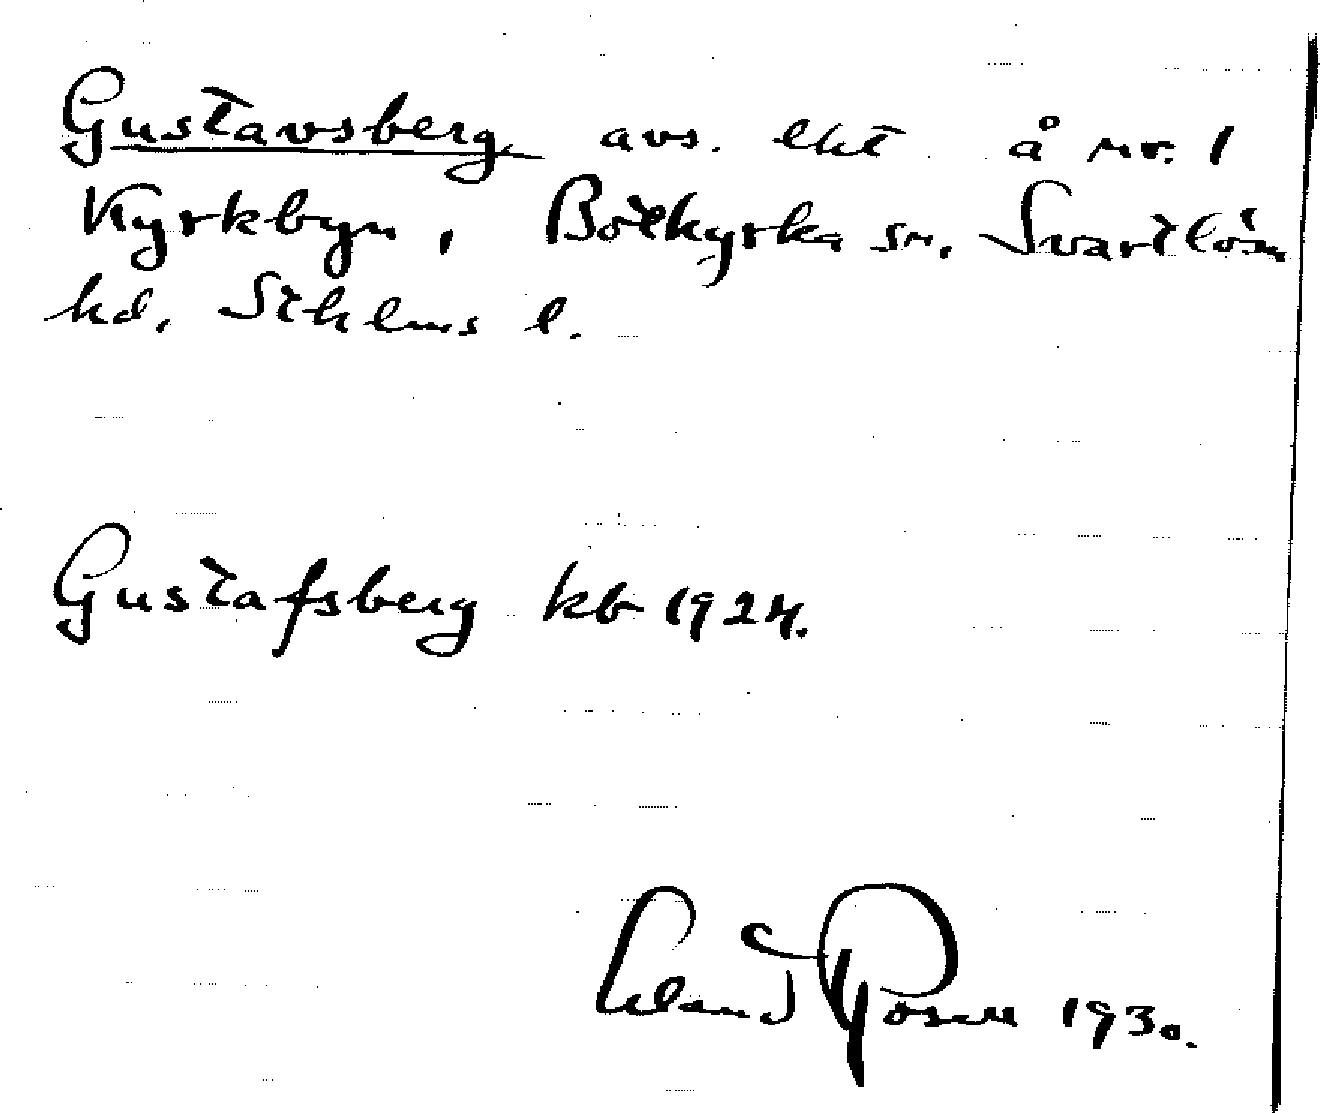 Gustavsberg, avs. lht å nr. 1
Kyrkbyn, Botkyrka sn, Svartlösa
hd, Sthlms l.
Gustafsberg kb 1924.
Erland Rosell 1930.